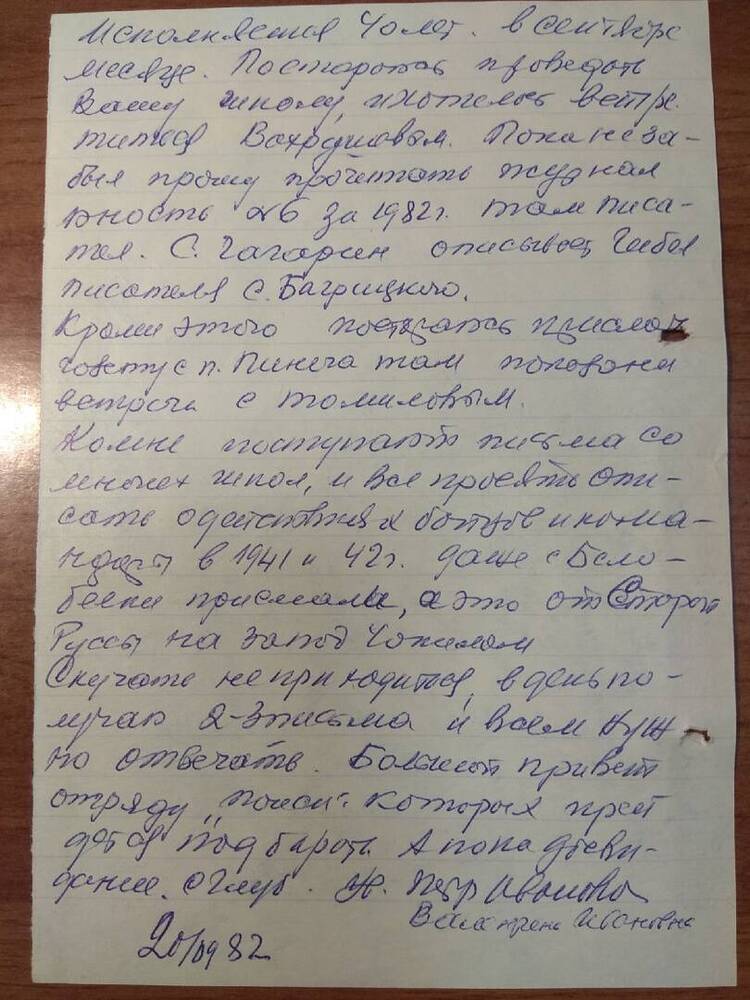 Исполняется 40 лет. в сентябре
месяце. Постараюсь проведать
Вашу школу, и хотелось встре
титься Вахрушовым. Пока не за-
был прошу прочитать журнал
юность №6 за 1982г. там писа-
тел. С. Гагарин описывает Гибел
писателя С. Багрицкого.
Кроми этого постараюсь прислат
газету с п. Пинега там показана
встреча с Томиловым.
Комне поступают писма со
многих школ, и все просять опи-
сать о действиях бойцов и кома-
ндеры в 1941 и 42г. даже с Бело-
белки прислали, а это от Старой
Руссы на запад 40 килом
Скучать не приходится, в день по-
лучаю 2-3 писма и всем нуж
но отвечать. Большой привет
отряду „поиск". которых прей
дется подбарот. А пока досви-
дание. с глуб. ув. Петр Иванови
Валентина Ивановна
20/IV 82